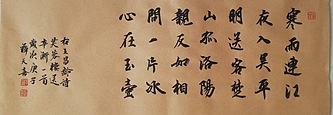 寒雨連江
夜入吴平
明送客楚
山孤洛陽
親友如相
問一片冰
心在玉壺
右王昌齡詩
芙蓉樓送
辛漸一首
歲次庚子